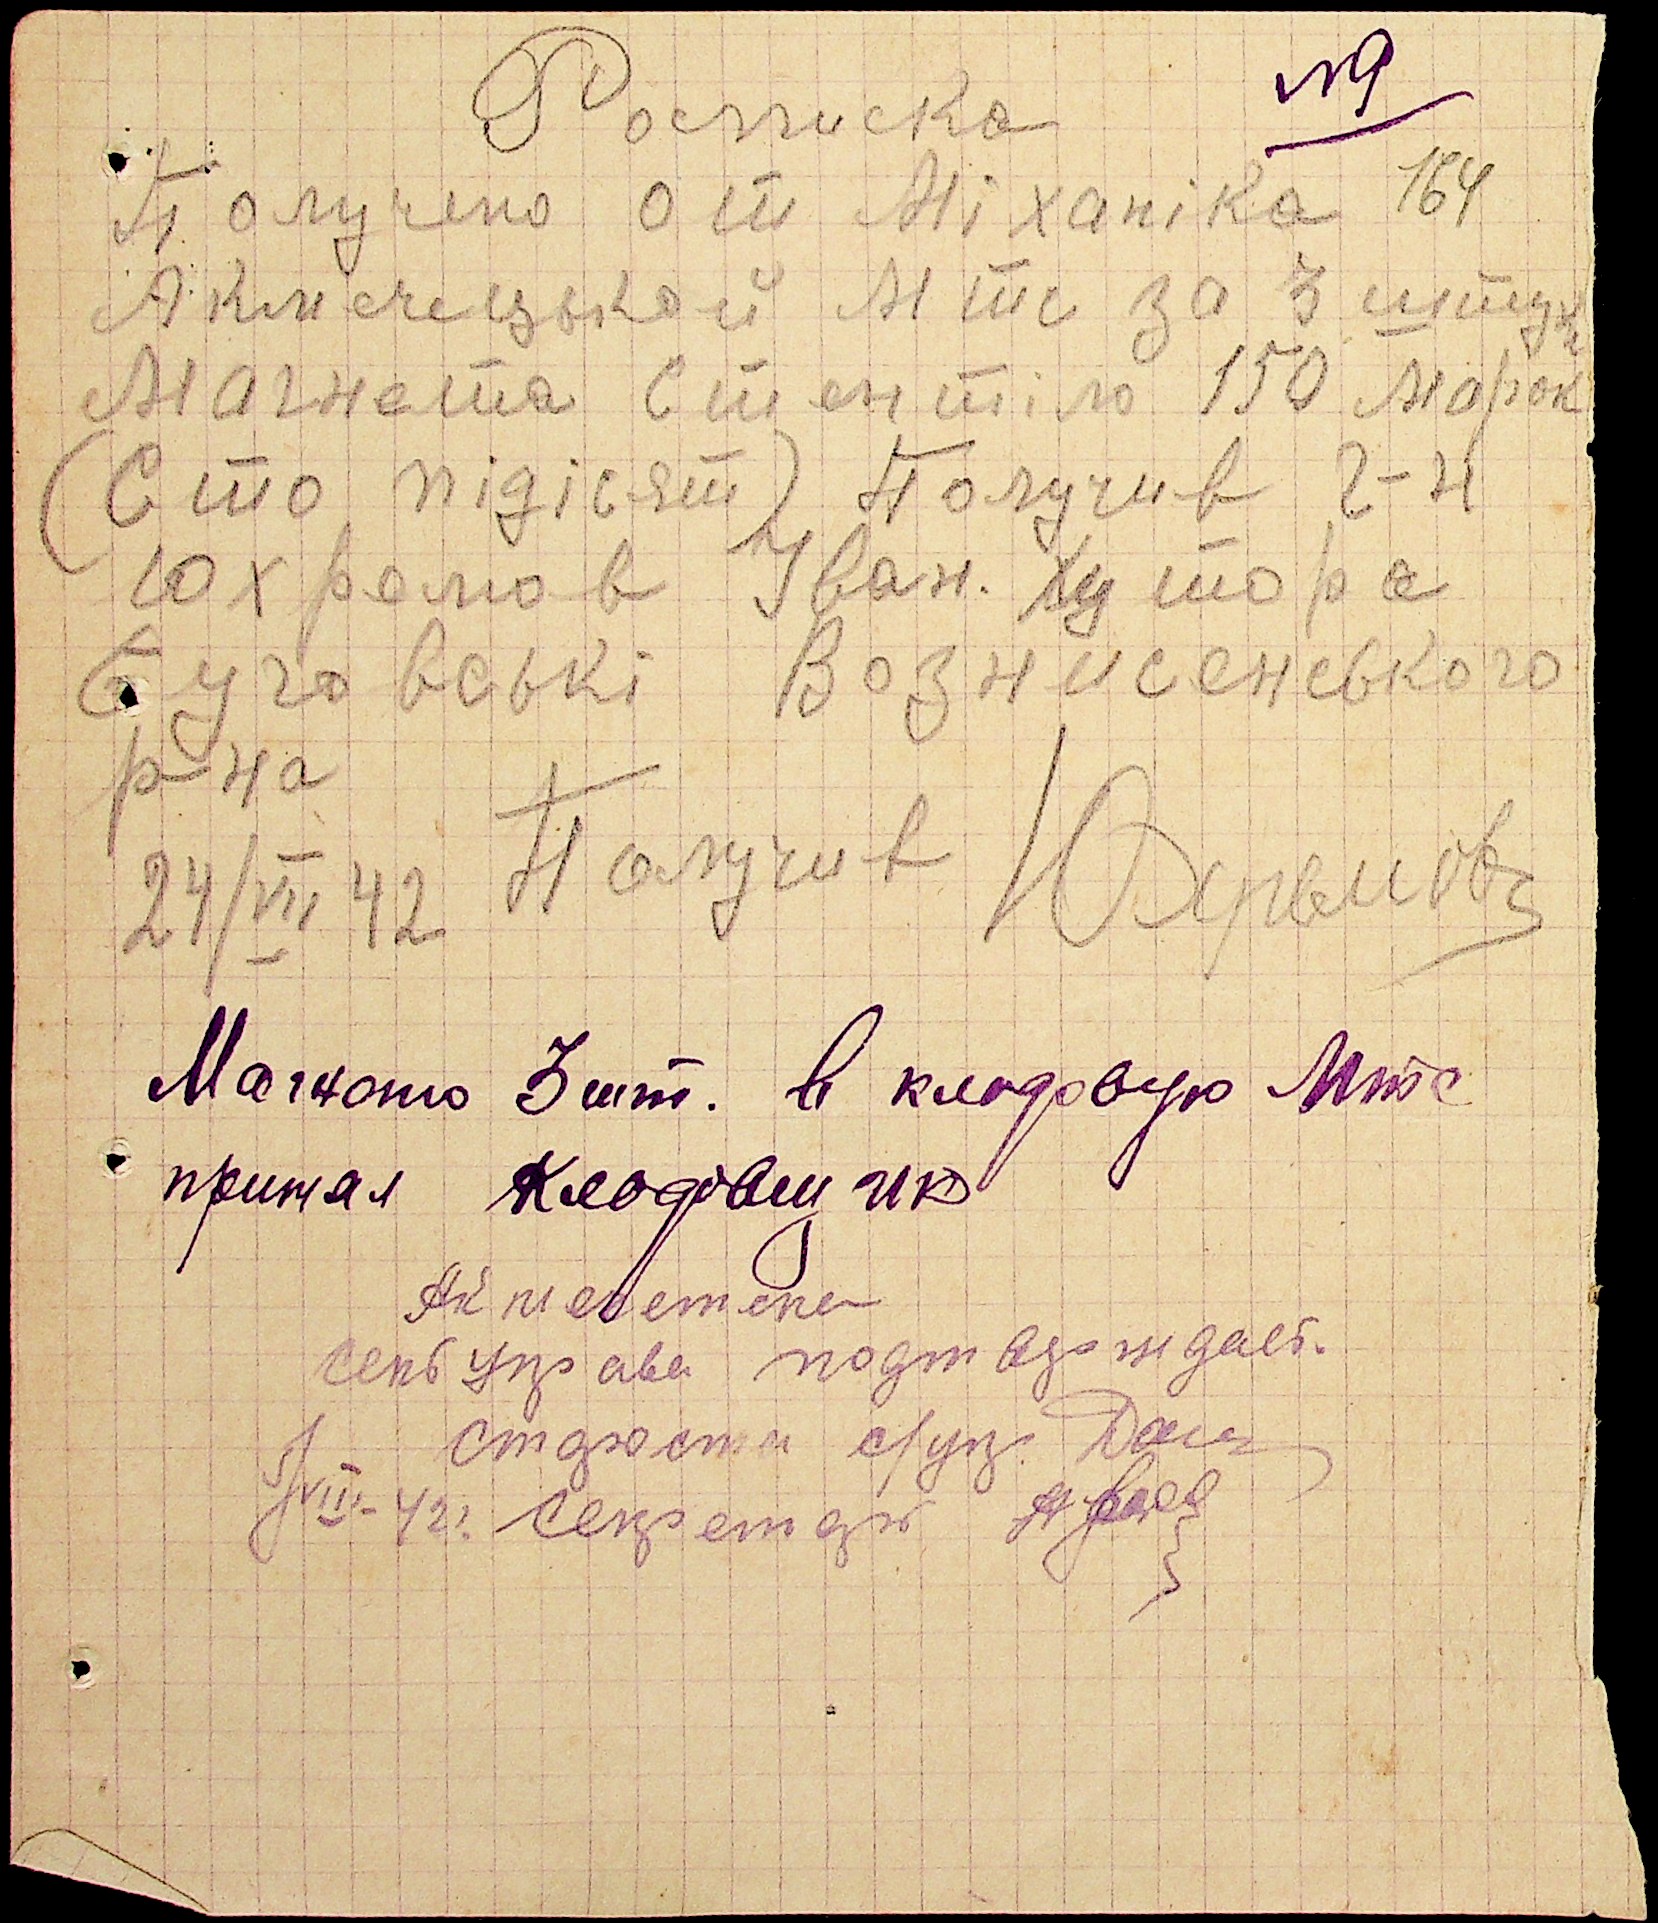 Росписка №9
Получено от Міханіка 164
Акмечецькой Мтс за 3 штуки
Магнета Стентіло 150 марок
(Сто підісят) Получив г-н
Юхремов Іван. Хутора
Буговські Вознисенського
р-на
24/VII 42 Получив Юхремов
Магнето 3 шт. в кладовую Мтс
принял Кладовщик
Акмечетская
сельуправа подтверждает.
Староста с/упр.
5/VIII-42г. Секретарь